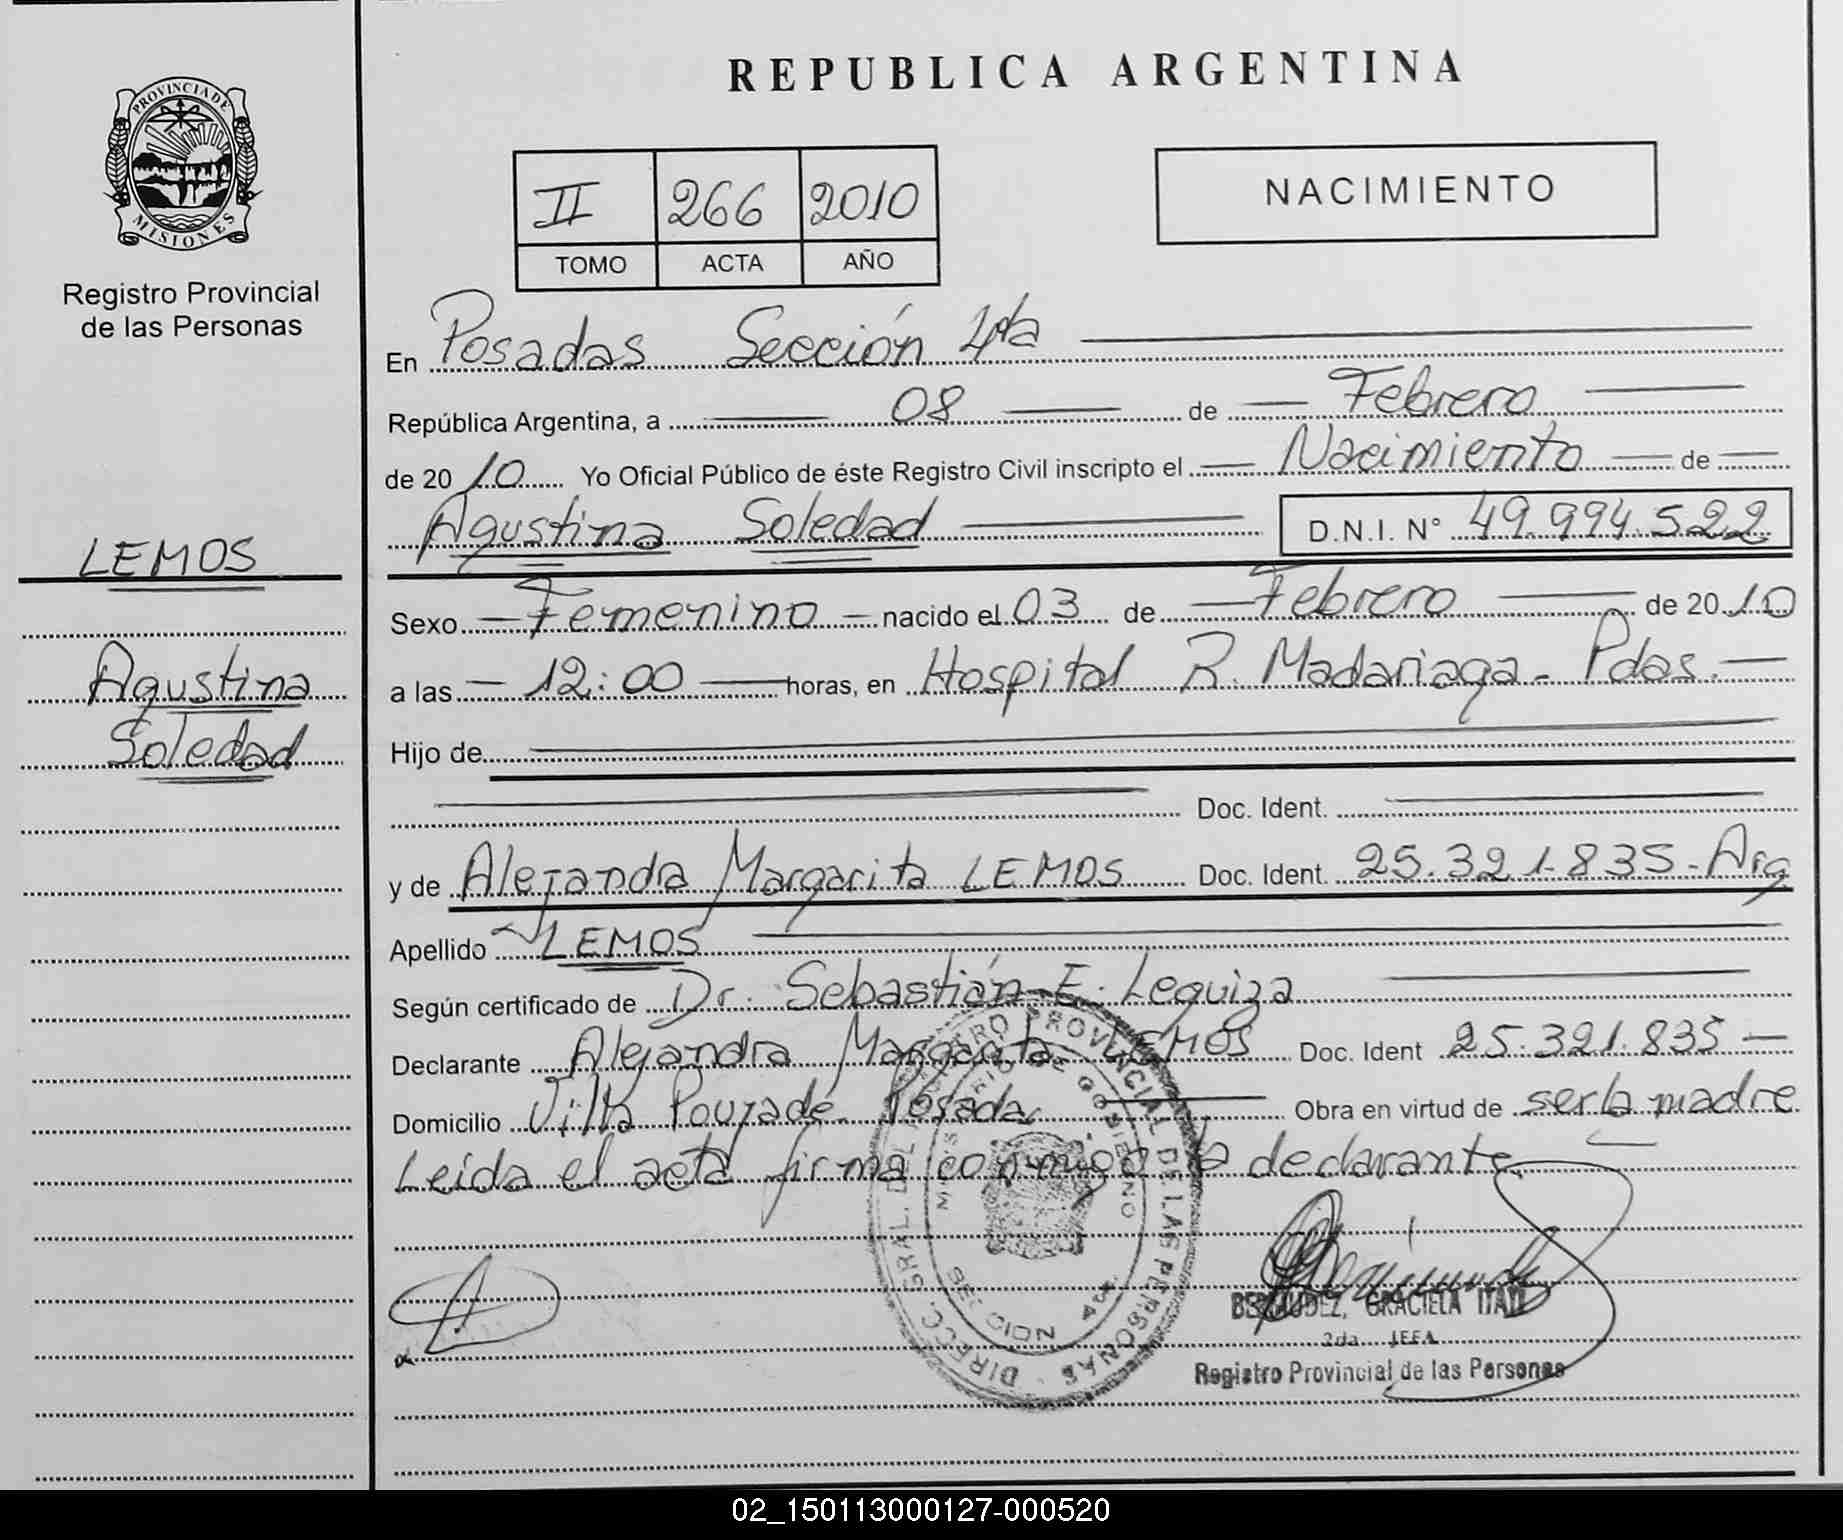 REPUBLICA ARGENTINA
PROVINCIA DE
MISIONES
Registro Provincial
de las Personas
II 266 2010
TOMO ACTA AÑO
NACIMIENTO
En Posadas Sección 4ta
República Argentina, a 08 de Febrero
de 20 10 Yo Oficial Público de éste Registro Civil inscripto el Nacimiento de
Agustina Soledad D.N.I. N° 49.994.522
LEMOS
Agustina
Soledad
Sexo Femenino nacido el 03 de Febrero de 20 10
a las 12:00 horas, en Hospital R. Madariaga - Pdas.
Hijo de
Doc. Ident.
y de Alejandra Margarita LEMOS Doc. Ident. 25.321.835 - Arg
Apellido LEMOS
Según certificado de Dr. Sebastián E. Leguiza
Declarante Alejandra Margarita LEMOS Doc. Ident 25.321.835
Domicilio Villa Poujadé Posadas Obra en virtud de ser la madre
Leída el acta firma conmigo la declarante
DIRECC. GRAL. DEL REGISTRO PROVINCIAL DE LAS PERSONAS
MINISTERIO DE GOBIERNO
SECCION 4ta.
BERMUDEZ, GRACIELA ITATI
2da JEFA
Registro Provincial de las Personas
02_150113000127-000520